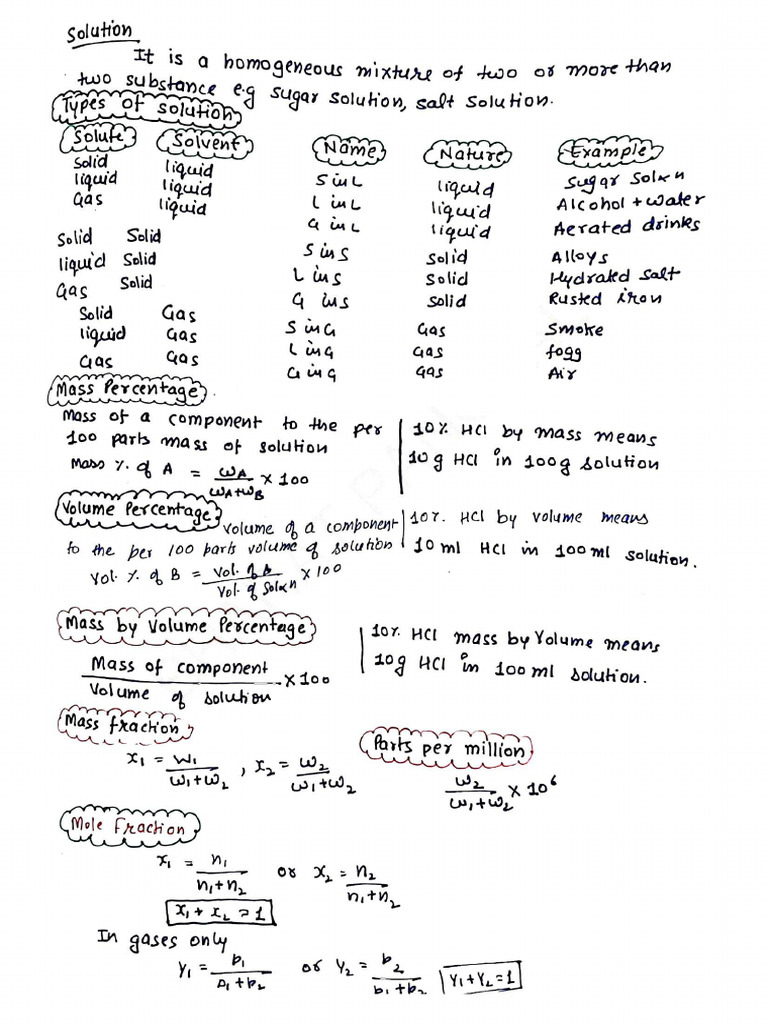 Solution
It is a homogeneous mixture of two or more than
two substance e.g sugar solution, salt solution.
Types of solution
Solute Solvent Name Nature Example
Solid liquid S in L liquid Sugar Sol×n
liquid liquid L in L liquid Alcohol + water
Gas liquid G in L liquid Aerated drinks
Solid Solid S in S Solid Alloys
liquid Solid L in S Solid Hydrated salt
Gas Solid G in S Solid Rusted iron
Solid Gas S in G Gas Smoke
liquid Gas L in G Gas fogg
Gas Gas G in G Gas Air
Mass Percentage
Mass of a component to the per
100 parts mass of solution
Mass % of A = WA/WA+WB × 100
10% HCl by mass means
10 g HCl in 100g solution
Volume Percentage
Volume of a component
to the per 100 parts volume of solution
Vol. % of B = Vol. of B/Vol. of Sol×n × 100
10%. HCl by volume means
10 ml HCl in 100 ml solution.
Mass by Volume Percentage
Mass of component/Volume of solution × 100
10%. HCl mass by Volume means
10g HCl in 100 ml solution.
Mass fraction
x1 = W1/W1+W2 , x2 = W2/W1+W2
Parts per million
W2/W1+W2 × 10⁶
Mole Fraction
x1 = n1/n1+n2 or x2 = n2/n1+n2
x1 + x2 = 1
In gases only
Y1 = p1/p1+p2 or Y2 = p2/p1+p2 Y1+Y2=1